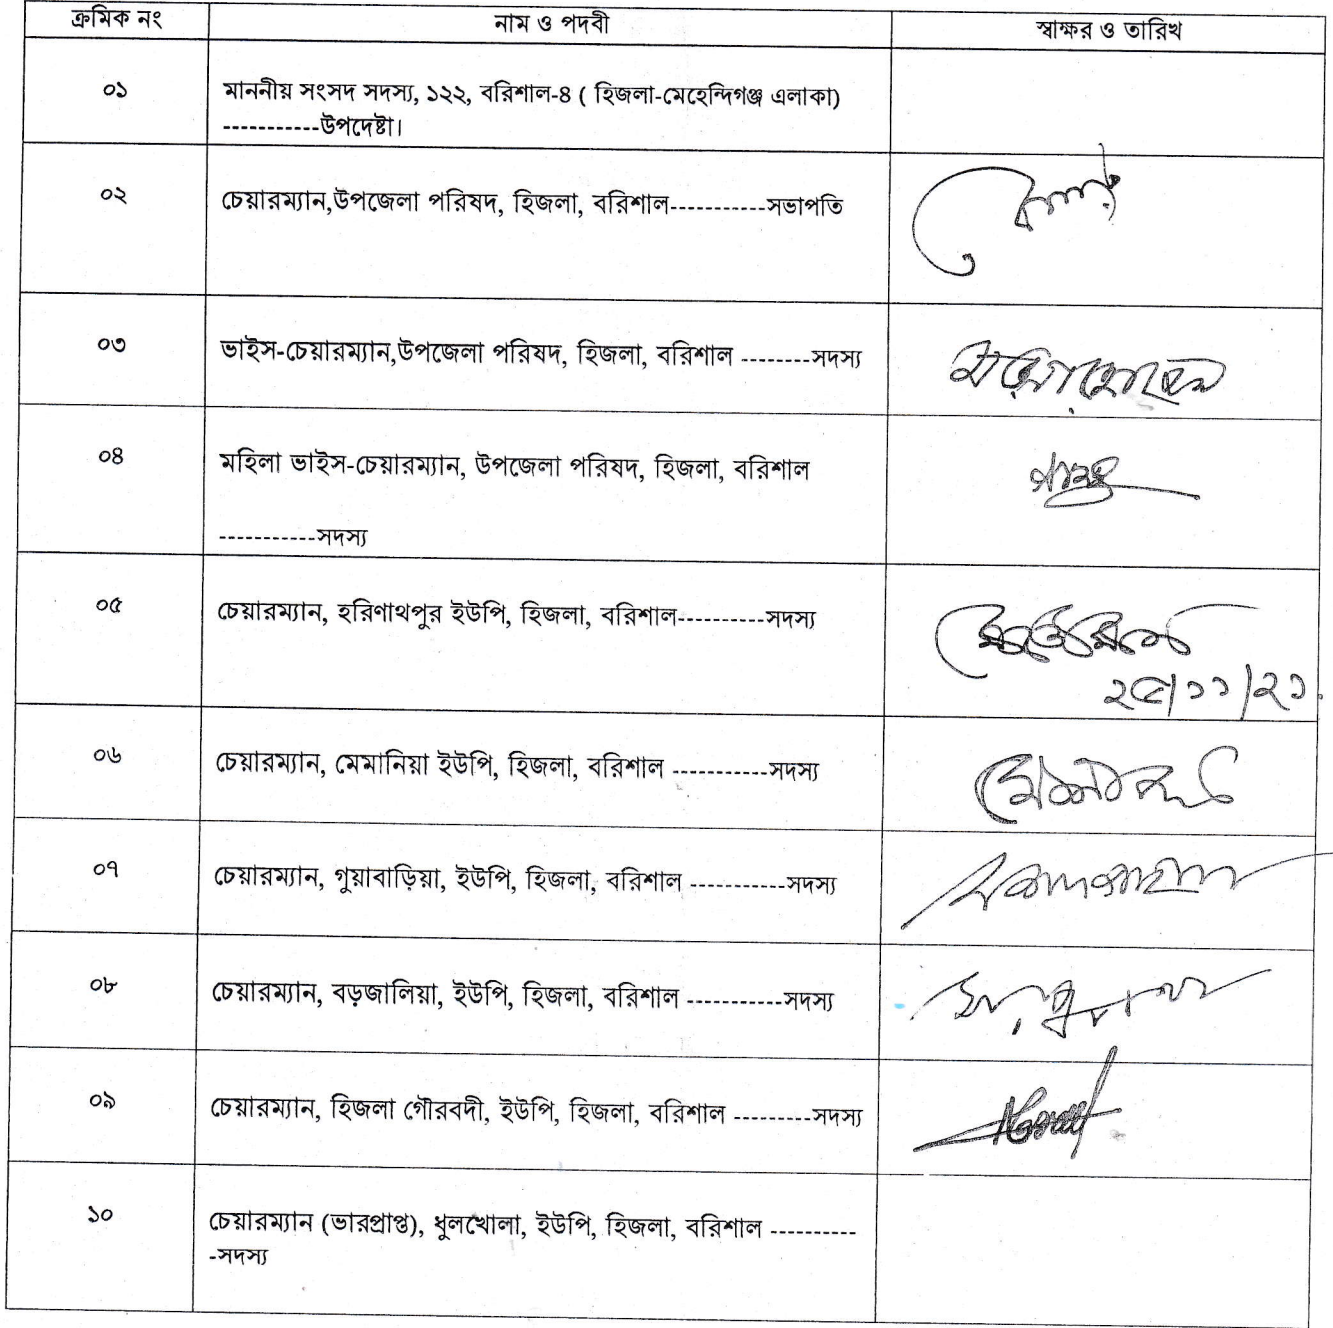 ক্রমিক নং নাম ও পদবী স্বাক্ষর ও তারিখ
০১ মাননীয় সংসদ সদস্য, ১২২, বরিশাল-৪ ( হিজলা-মেহেন্দিগঞ্জ এলাকা)
-----------উপদেষ্টা।
০২ চেয়ারম্যান,উপজেলা পরিষদ, হিজলা, বরিশাল-----------সভাপতি
০৩ ভাইস-চেয়ারম্যান,উপজেলা পরিষদ, হিজলা, বরিশাল --------সদস্য
০৪ মহিলা ভাইস-চেয়ারম্যান, উপজেলা পরিষদ, হিজলা, বরিশাল
-----------সদস্য
০৫ চেয়ারম্যান, হরিণাথপুর ইউপি, হিজলা, বরিশাল----------সদস্য
২৫/১১/২১
০৬ চেয়ারম্যান, মেমানিয়া ইউপি, হিজলা, বরিশাল -----------সদস্য
০৭ চেয়ারম্যান, গুয়াবাড়িয়া, ইউপি, হিজলা, বরিশাল -----------সদস্য
০৮ চেয়ারম্যান, বড়জালিয়া, ইউপি, হিজলা, বরিশাল -----------সদস্য
০৯ চেয়ারম্যান, হিজলা গৌরবদী, ইউপি, হিজলা, বরিশাল ---------সদস্য
১০ চেয়ারম্যান (ভারপ্রাপ্ত), ধুলখোলা, ইউপি, হিজলা, বরিশাল ----------
-সদস্য